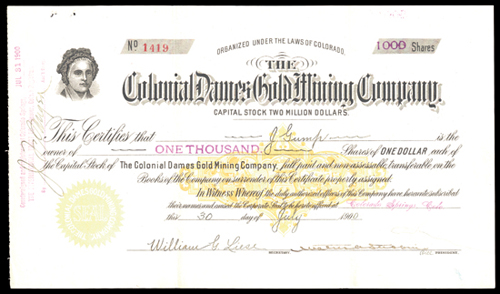 No 1419
1000 Shares
ORGANIZED UNDER THE LAWS OF COLORADO.
THE
Colonial Dames Gold Mining Company.
CAPITAL STOCK TWO MILLION DOLLARS.
This Certifies that J Gump is the
owner of ONE THOUSAND Shares of ONE DOLLAR each of
the Capital Stock of The Colonial Dames Gold Mining Company, full paid and non-assessable, transferable on the
Books of the Company on surrender of this Certificate properly assigned.
In Witness Whereof the duly authorized officers of this Company have hereunto subscribed
their names and caused the Corporate Seal to be hereto affixed at Colorado Springs, Colo
this 30 day of July 1900
William G. Liese
SECRETARY.
JUL 31 1900